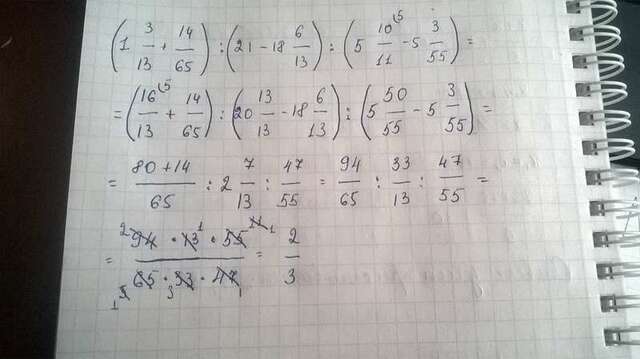 (1 3/13 + 14/65) : (21 - 18 6/13) : (5 10/11 ⁽⁵ - 5 3/55) =
= (16/13 ⁽⁵ + 14/65) : (20 13/13 - 18 6/13) : (5 50/55 - 5 3/55) =
= (80 + 14)/65 : 2 7/13 : 47/55 = 94/65 : 33/13 : 47/55 =
= (94 · 13 · 55)/(65 · 33 · 47) = 2/3